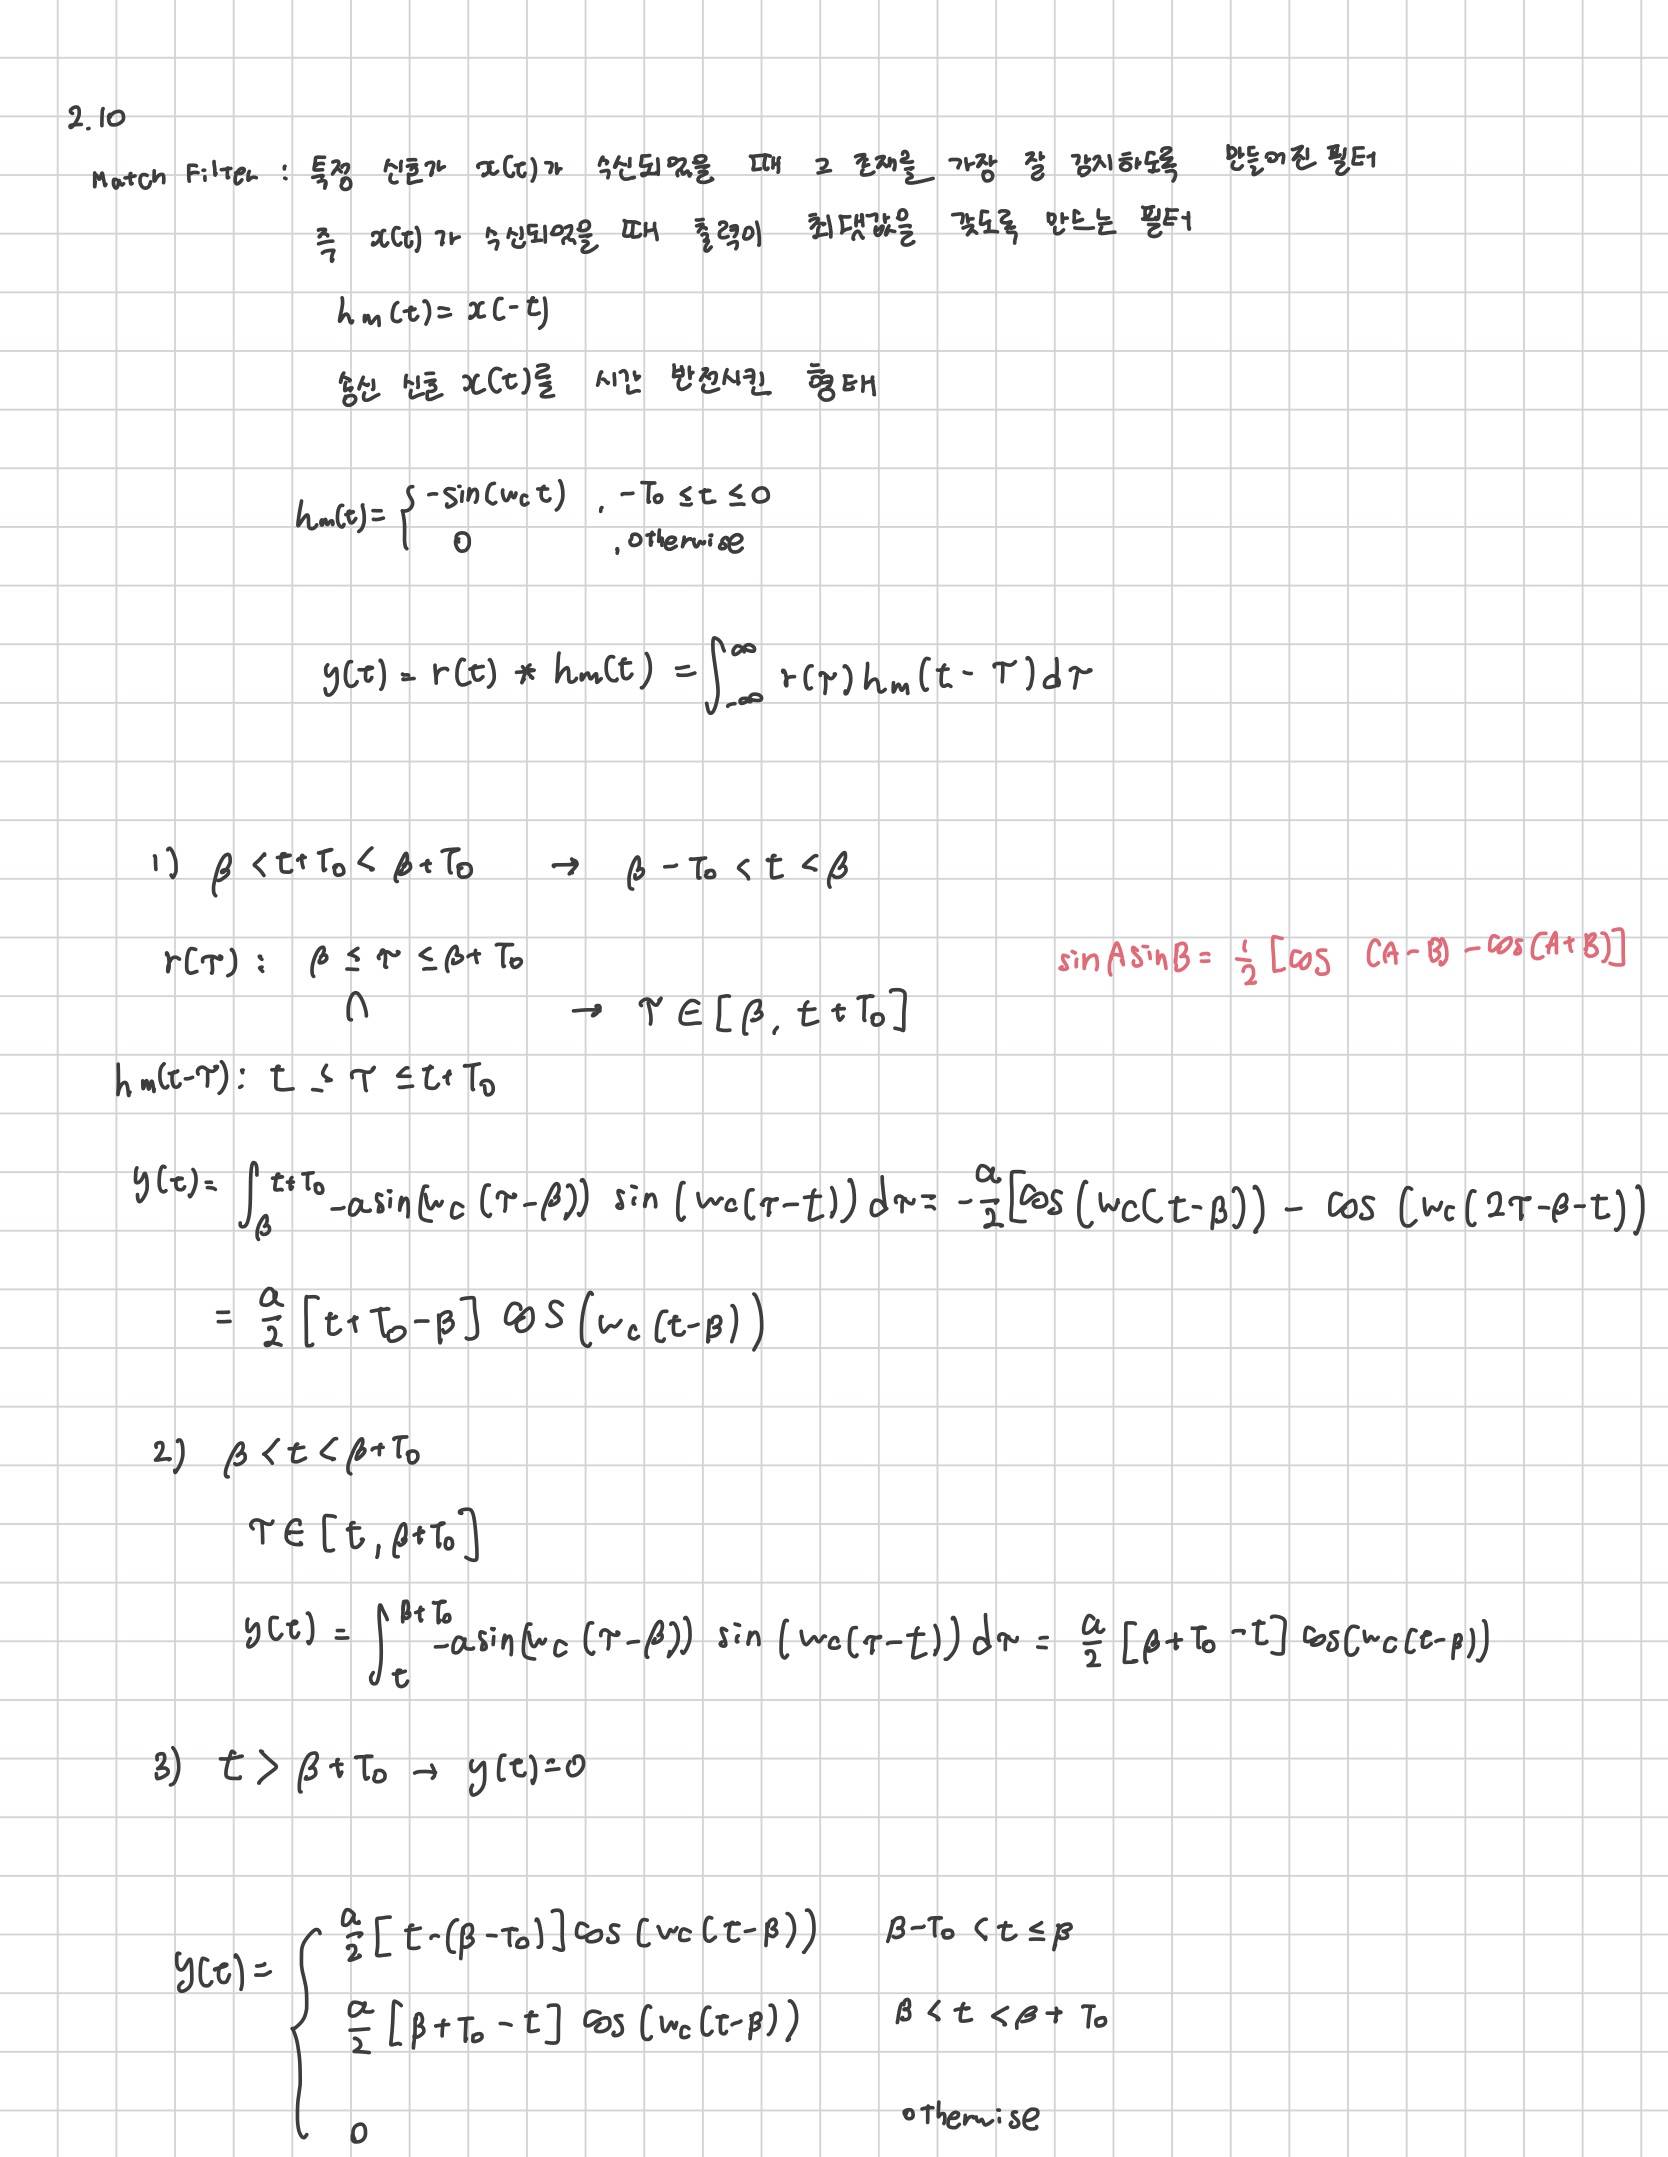 2.10
Match Filter : 특정 신호가 x(t)가 수신되었을 때 그 존재를 가장 잘 감지하도록 만들어진 필터
즉 x(t)가 수신되었을 때 출력이 최댓값을 갖도록 만드는 필터
hₘ(t) = x(-t)
송신 신호 x(t)를 시간 반전시킨 형태
hₘ(t) = { -sin(w_c t) , -T₀ ≤ t ≤ 0
0 , otherwise
y(t) = r(t) * hₘ(t) = ∫_{-∞}^{∞} r(τ) hₘ(t - τ) dτ
1) β < t+T₀ < β+T₀ → β - T₀ < t < β
r(τ) : β ≤ τ ≤ β+T₀
sinAsinB = 1/2 [cos (A-B) - cos(A+B)]
∩ → τ ∈ [β, t+T₀]
hₘ(t-τ) : t ≤ τ ≤ t+T₀
y(t) = ∫_{β}^{t+T₀} -a sin(w_c(τ-β)) sin(w_c(τ-t)) dτ = -a/2 [cos(w_c(t-β)) - cos(w_c(2τ-β-t))
= a/2 [t+T₀-β] cos(w_c(t-β))
2) β < t < β+T₀
τ ∈ [t, β+T₀]
y(t) = ∫_{t}^{β+T₀} -a sin(w_c(τ-β)) sin(w_c(τ-t)) dτ = a/2 [β+T₀-t] cos(w_c(t-β))
3) t > β+T₀ → y(t)=0
y(t) = { a/2 [t-(β-T₀)] cos(w_c(t-β)) β-T₀ < t ≤ β
a/2 [β+T₀-t] cos(w_c(t-β)) β < t < β+T₀
0 otherwise